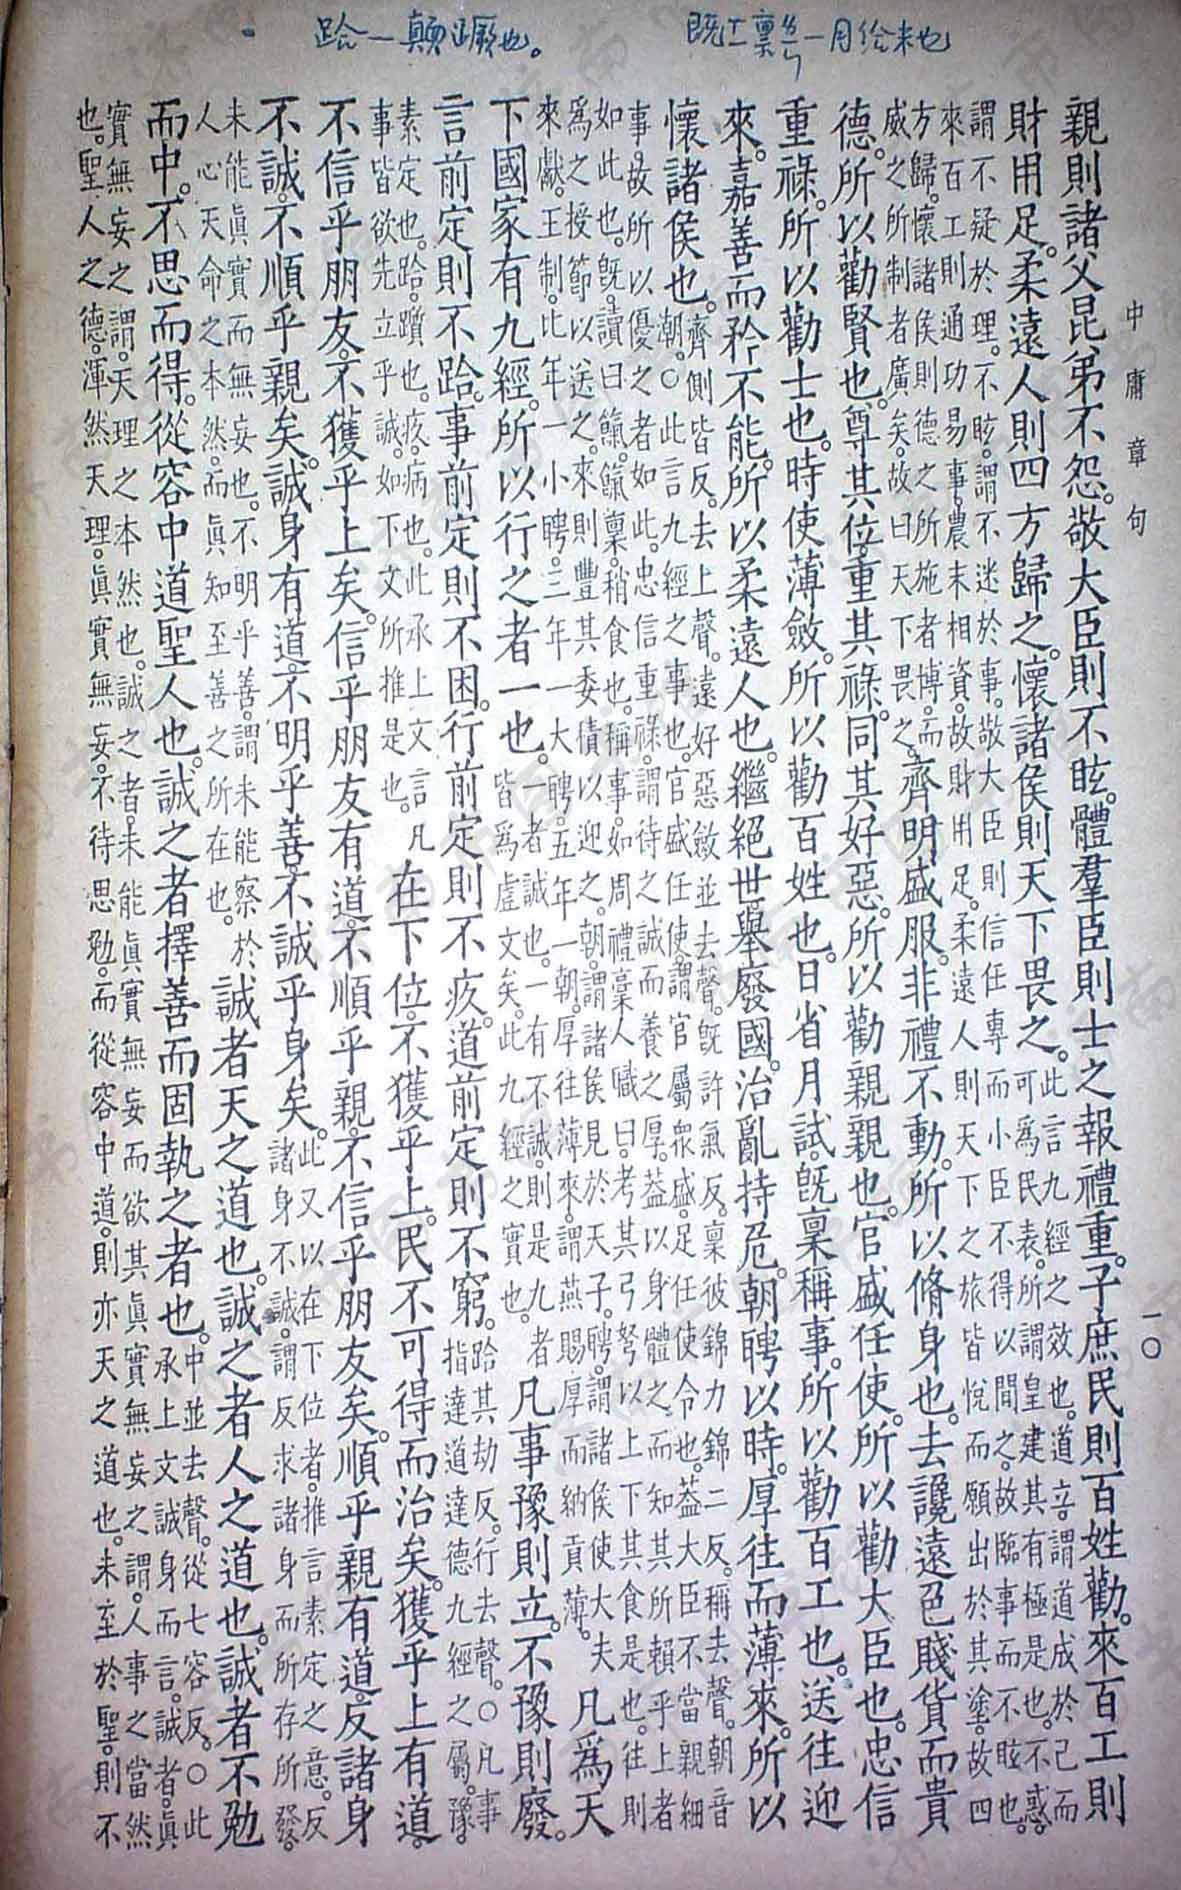 跲一颠蹶也。
中庸章句
一〇
親則諸父昆弟不怨。敬大臣則不眩。體羣臣則士之報禮重。子庶民則百姓勸。來百工則
財用足。柔遠人則四方歸之。懷諸侯則天下畏之。
此言九經之效也。道立。謂道成於己而
可爲民表。所謂皇建其有極是也。不惑。
謂不疑於理。不眩。謂不迷於事。敬大臣則信任專。而小臣不得以間之。故臨事而不眩也。
來百工則通功易事。農末相資。故財用足。柔遠人則天下之旅皆悅而願出於其塗。故四
方歸。懷諸侯則德之所施者博。而
威之所制者廣矣。故曰天下畏之。
齊明盛服。非禮不動。所以脩身也。去讒遠色。賤貨而貴
德。所以勸賢也。尊其位。重其祿。同其好惡。所以勸親親也。官盛任使。所以勸大臣也。忠信
重祿。所以勸士也。時使薄斂。所以勸百姓也。日省月試。旣稟稱事。所以勸百工也。送往迎
來。嘉善而矜不能。所以柔遠人也。繼絕世。舉廢國。治亂持危。朝聘以時。厚往而薄來。所以
懷諸侯也。
齊側皆反。去上聲。遠好惡斂並去聲。旣許氣反。稟彼錦力錦二反。稱去聲。朝音
潮。○此言九經之事也。官盛任使。謂官屬衆盛。足任使令也。蓋大臣不當親細
事。故所以優之者如此。忠信重祿。謂待之誠而養之厚。蓋以身體之。而知其所賴乎上者
如此也。旣讀曰餼。餼稟。稍食也。稱事。如周禮稾人職曰。考其弓弩。以上下其食是也。往則
爲之授節以送之。來則豐其委積以迎之。朝。謂諸侯見於天子。聘。謂諸侯使大夫
來獻。王制。比年一小聘。三年一大聘。五年一朝。厚往薄來。謂燕賜厚而納貢薄。
凡爲天
下國家有九經。所以行之者一也。
一者誠也。一有不誠。則是九者
皆爲虛文矣。此九經之實也。
凡事豫則立。不豫則廢。
言前定則不跲。事前定則不困。行前定則不疚。道前定則不窮。
跲其劫反。行去聲。○凡事
指達道達德九經之屬。豫。
素定也。跲。躓也。疚。病也。此承上文。言凡
事皆欲先立乎誠。如下文所推是也。
在下位。不獲乎上。民不可得而治矣。獲乎上有道。
不信乎朋友。不獲乎上矣。信乎朋友有道。不順乎親。不信乎朋友矣。順乎親有道。反諸身
不誠。不順乎親矣。誠身有道。不明乎善。不誠乎身矣。
此又以在下位者。推言素定之意。反
諸身不誠。謂反求諸身而所存所發。
未能眞實而無妄也。不明乎善。謂未能察於
人心天命之本然。而眞知至善之所在也。
誠者天之道也。誠之者人之道也。誠者不勉
而中。不思而得。從容中道。聖人也。誠之者。擇善而固執之者也。
中並去聲。從七容反。○此
承上文誠身而言。誠者。眞
實無妄之謂。天理之本然也。誠之者。未能眞實無妄。而欲其眞實無妄之謂。人事之當然
也。聖人之德。渾然天理。眞實無妄。不待思勉。而從容中道。則亦天之道也。未至於聖。則不